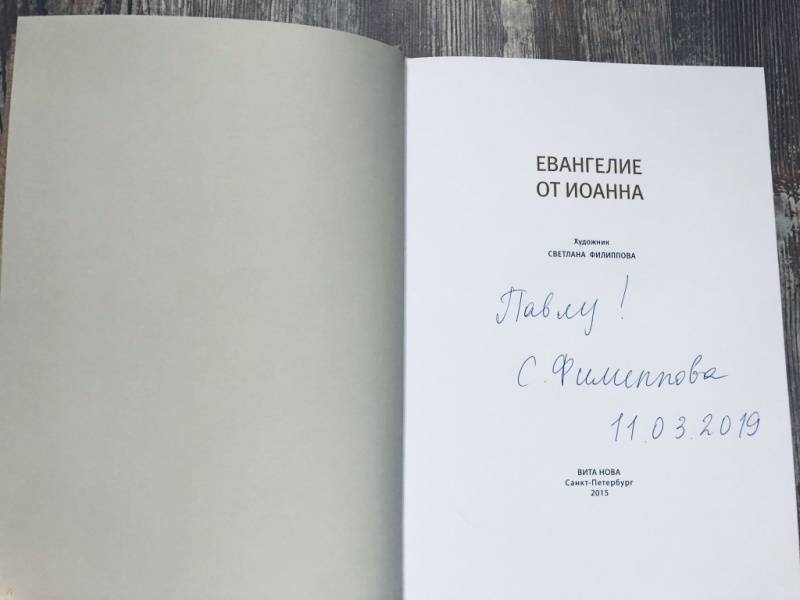 ЕВАНГЕЛИЕ
ОТ ИОАННА
Художник
СВЕТЛАНА ФИЛИППОВА
Павлу!
С. Филиппова
11.03.2019
ВИТА НОВА
Санкт-Петербург
2015